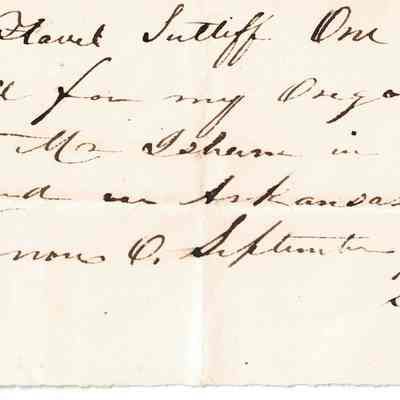 Flavel Sutliff One
for my Orego
Mr Isham in
in Arkansas
O. September